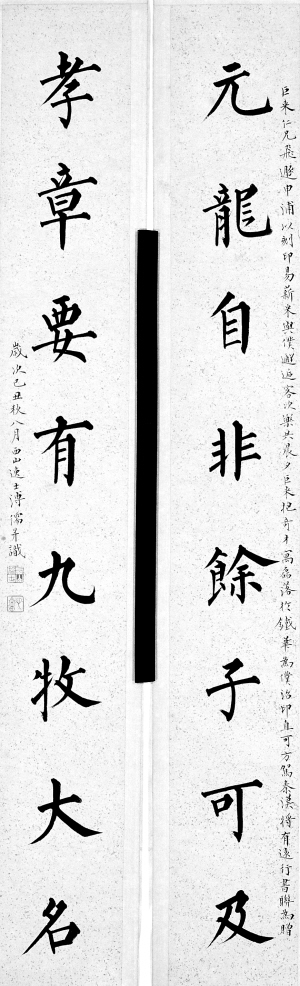 巨來仁兄飛遯申浦以刻印易薪米與僕邂逅客次樂共晨夕巨來抱奇才寓磊落於鐵筆為僕治印直可方駕秦漢將有遠行書聯為贈
元龍自非餘子可及
孝章要有九牧大名
歲次己丑秋八月西山逸士溥儒并識